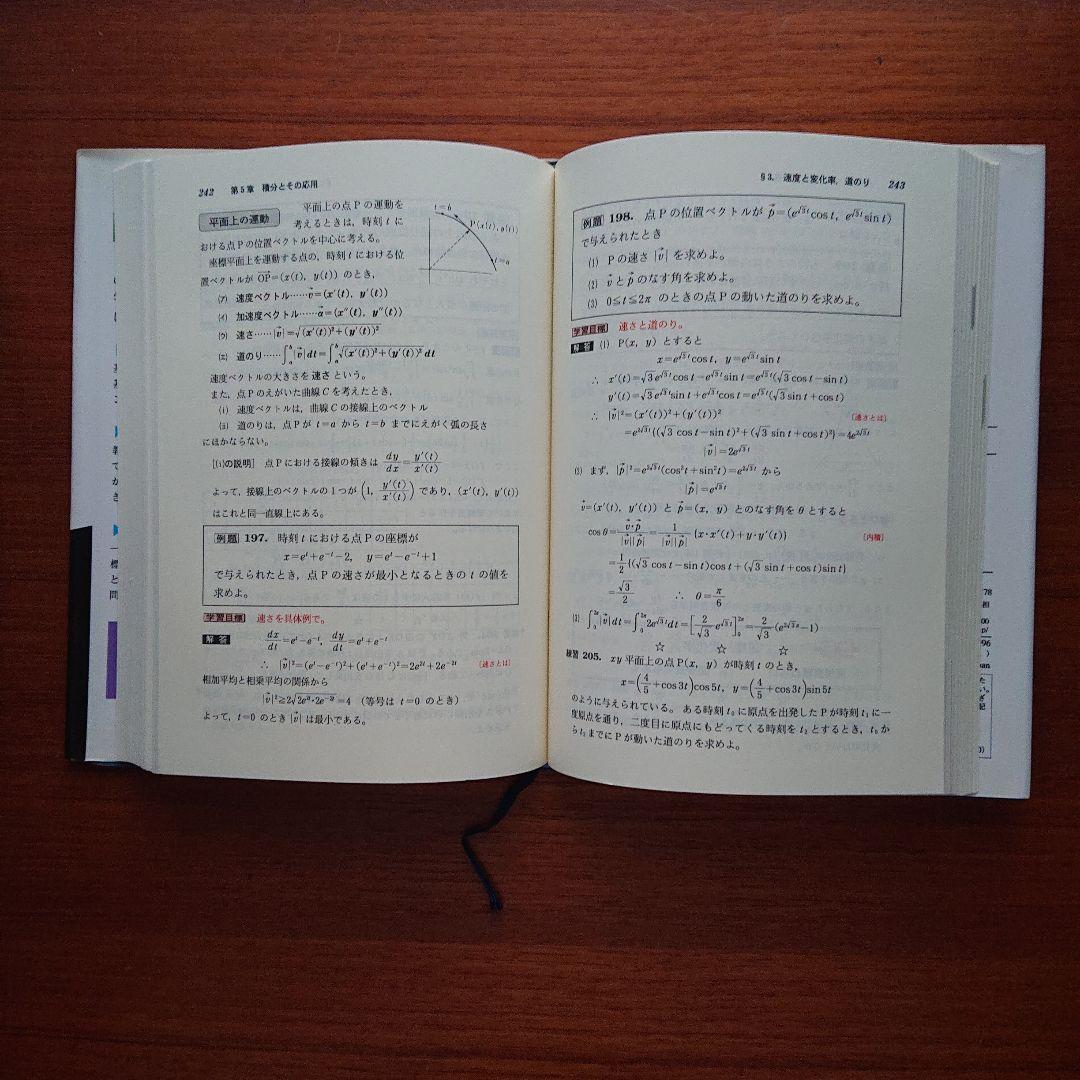 242 第5章 積分とその応用
平面上の運動
平面上の点Pの運動を
考えるときは，時刻 t に
おける点Pの位置ベクトルを中心に考える。
座標平面上を運動する点の，時刻 t における位
置ベクトルが OP=(x(t), y(t)) のとき，
t=b
P(x(t), y(t))
t=a
(ア) 速度ベクトル……v=(x′(t), y′(t))
(イ) 加速度ベクトル……α=(x″(t), y″(t))
(ウ) 速さ……|v|=√(x′(t))²+(y′(t))²
(エ) 道のり……∫ₐᵇ|v|dt=∫ₐᵇ√(x′(t))²+(y′(t))² dt
速度ベクトルの大きさを 速さ という。
また，点Pのえがいた曲線Cを考えたとき，
(i) 速度ベクトルは，曲線Cの接線上のベクトル
(ii) 道のりは，点Pが t=a から t=b までにえがく弧の長さ
にほかならない。
[(i)の説明] 点Pにおける接線の傾きは dy/dx=y′(t)/x′(t)
よって，接線上のベクトルの1つが (1, y′(t)/x′(t)) であり，(x′(t), y′(t))
はこれと同一直線上にある。
例題 197. 時刻 t における点Pの座標が
x=eᵗ+e⁻ᵗ−2, y=eᵗ−e⁻ᵗ+1
で与えられたとき，点Pの速さが最小となるときの t の値を
求めよ。
学習目標 速さを具体例で。
解答 dx/dt=eᵗ−e⁻ᵗ, dy/dt=eᵗ+e⁻ᵗ
∴ |v|²=(eᵗ−e⁻ᵗ)²+(eᵗ+e⁻ᵗ)²=2e²ᵗ+2e⁻²ᵗ [速さとは]
相加平均と相乗平均の関係から
|v|²≧2√2e²ᵗ·2e⁻²ᵗ=4 (等号は t=0 のとき)
よって，t=0 のとき |v| は最小である。
§3. 速度と変化率，道のり 243
例題 198. 点Pの位置ベクトルが p=(e^(√3 t)cos t, e^(√3 t)sin t)
で与えられたとき
(1) Pの速さ |v| を求めよ。
(2) v と p のなす角を求めよ。
(3) 0≦t≦2π のときの点Pの動いた道のりを求めよ。
学習目標 速さと道のり。
解答 (1) P(x, y) とすると
x=e^(√3 t)cos t, y=e^(√3 t)sin t
∴ x′(t)=√3 e^(√3 t)cos t−e^(√3 t)sin t=e^(√3 t)(√3 cos t−sin t)
y′(t)=√3 e^(√3 t)sin t+e^(√3 t)cos t=e^(√3 t)(√3 sin t+cos t)
∴ |v|²=(x′(t))²+(y′(t))² [速さとは]
=e^(2√3 t){(√3 cos t−sin t)²+(√3 sin t+cos t)²}=4e^(2√3 t)
|v|=2e^(√3 t)
(2) まず，|p|²=e^(2√3 t)(cos²t+sin²t)=e^(2√3 t) から
|p|=e^(√3 t)
v=(x′(t), y′(t)) と p=(x, y) とのなす角を θ とすると
cos θ=v·p/|v||p|=1/|v||p| {x·x′(t)+y·y′(t)} [内積]
=1/2{(√3 cos t−sin t)cos t+(√3 sin t+cos t)sin t}
=√3/2 ∴ θ=π/6
(3) ∫₀^(2π)|v|dt=∫₀^(2π)2e^(√3 t)dt=[2/√3 e^(√3 t)]₀^(2π)=2/√3(e^(2√3 π)−1)
☆ ☆ ☆
練習 205. xy平面上の点P(x, y) が時刻 t のとき，
x=(4/5+cos3t)cos5t, y=(4/5+cos3t)sin5t
のように与えられている。ある時刻 t₀ に原点を出発したPが時刻 t₁ に一
度原点を通り，二度目に原点にもどってくる時刻を t₂ とするとき，t₀ か
ら t₂ までにPが動いた道のりを求めよ。